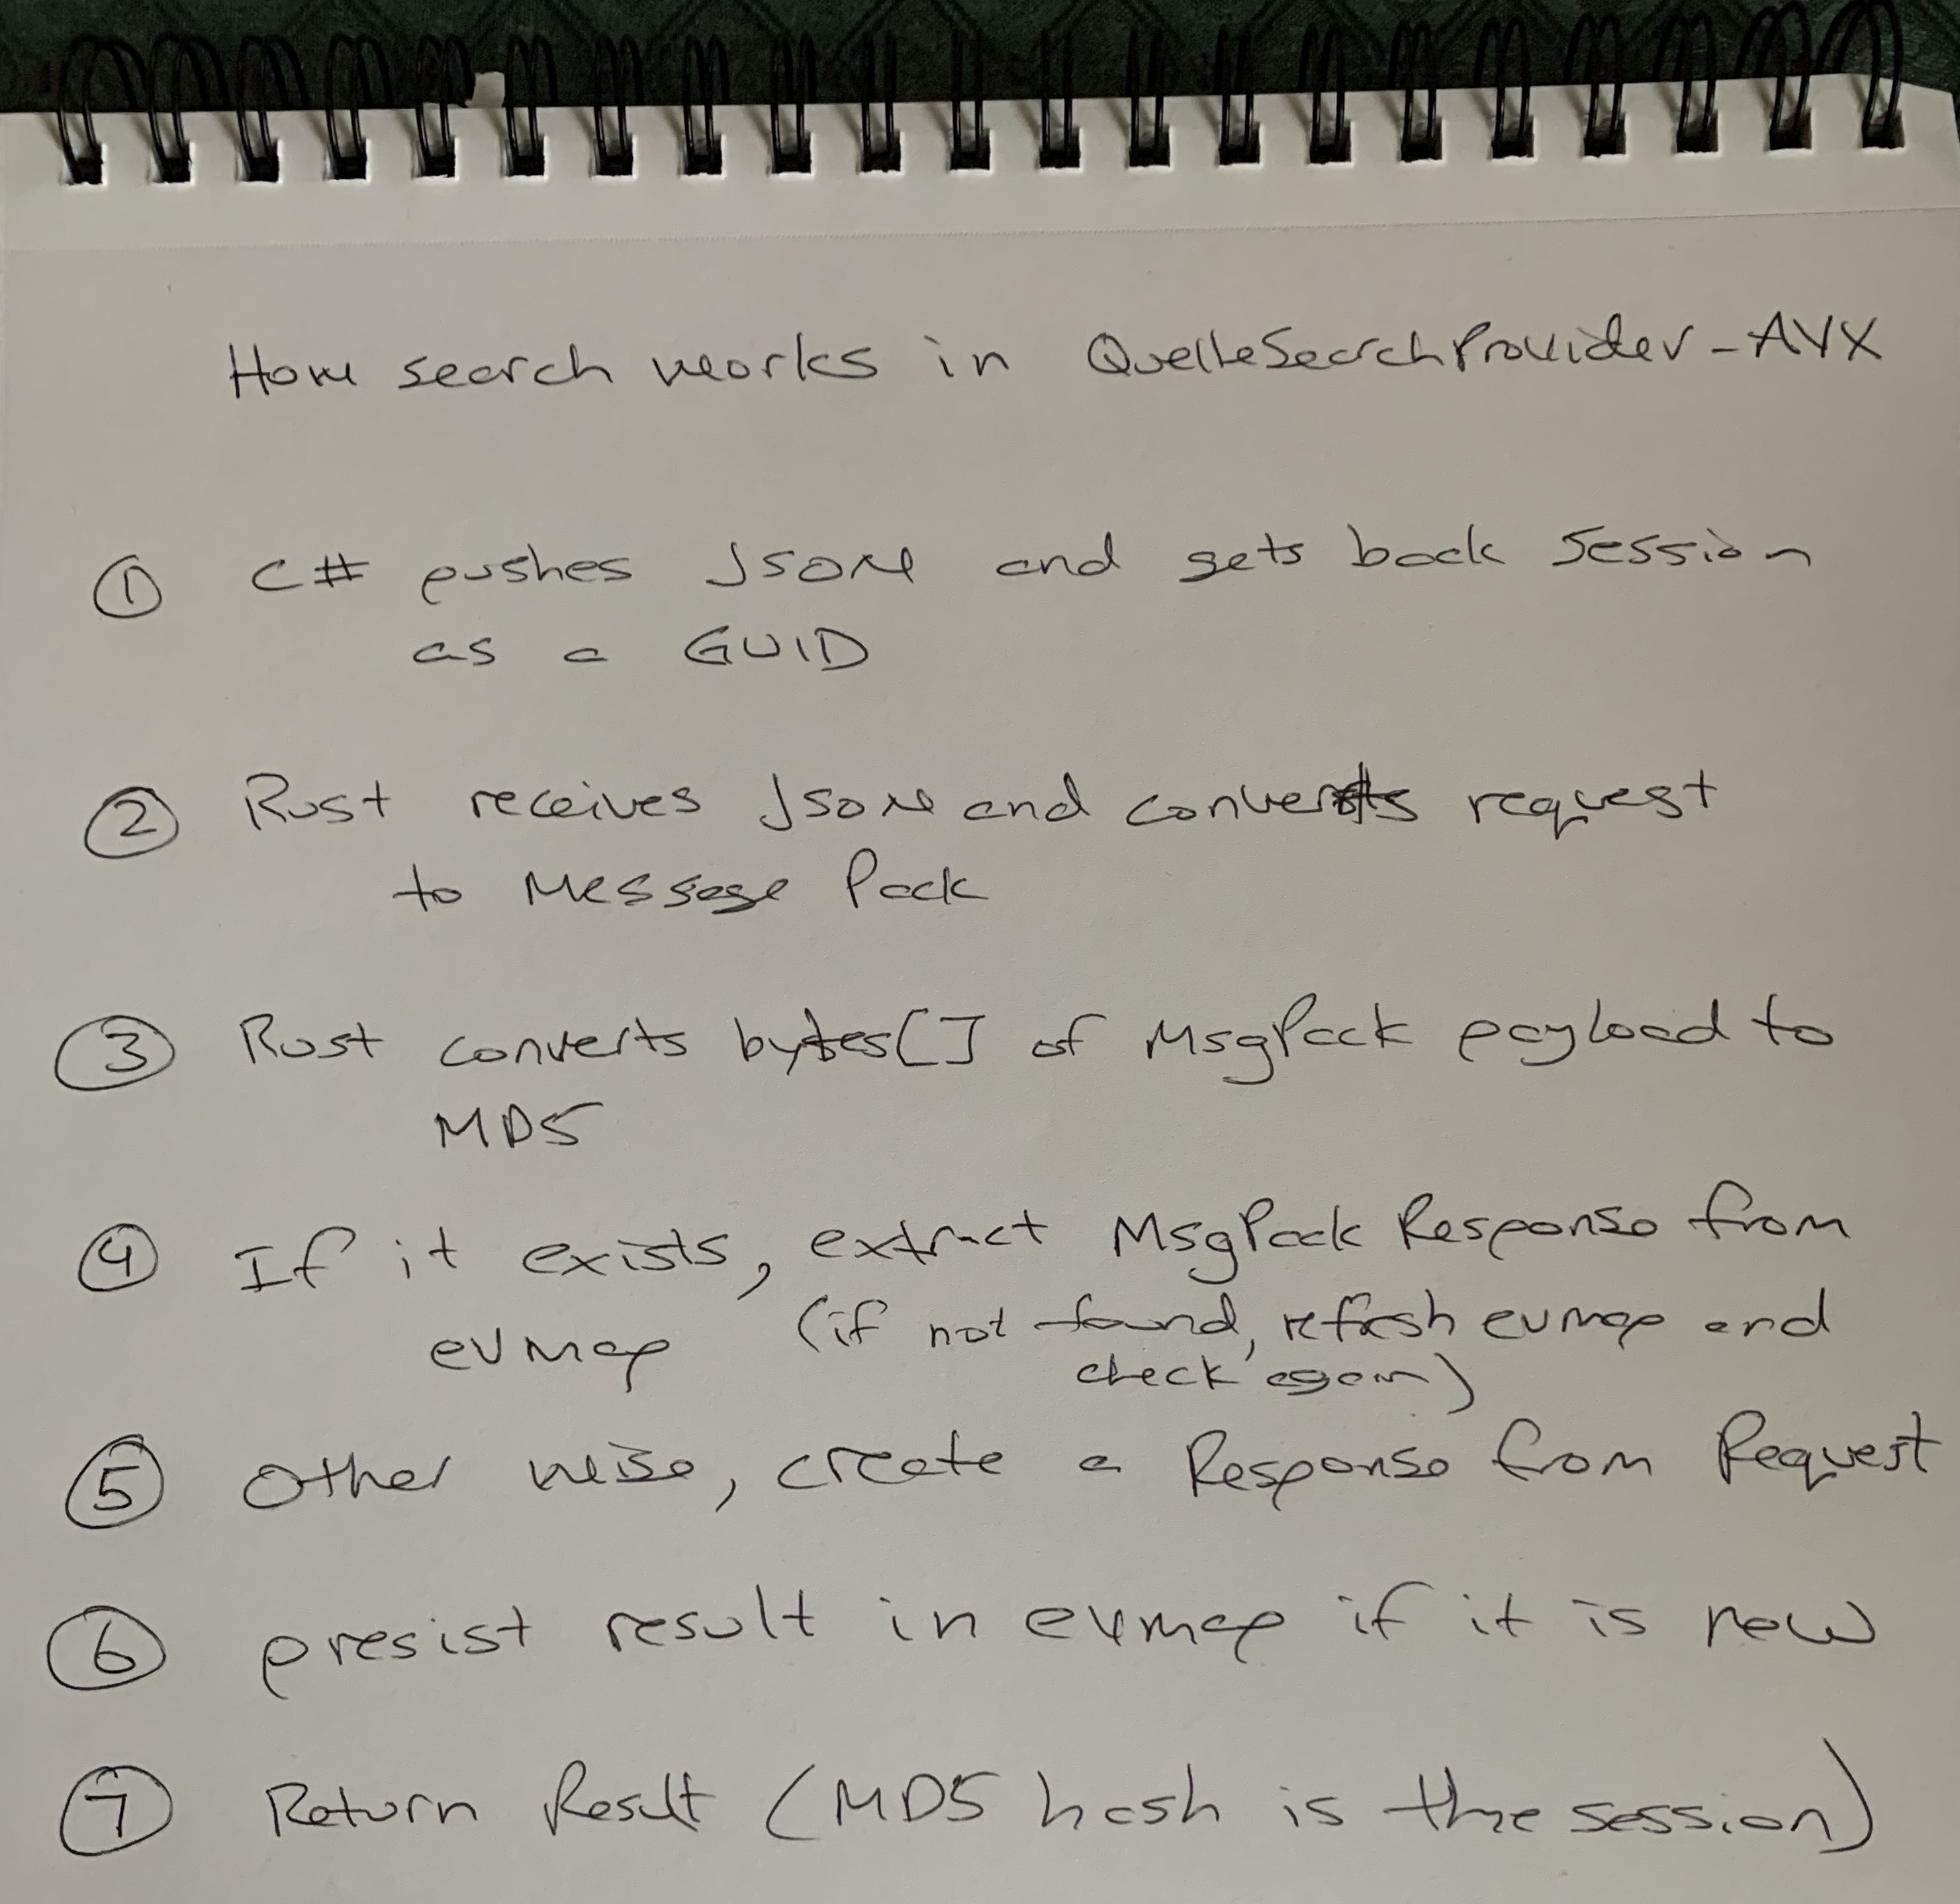 How search works in QuelleSearchProvider-AVX
① C# pushes JSON and gets back session
as a GUID
② Rust receives JSON and converts request
to Message Pack
③ Rust converts bytes[] of MsgPack payload to
MD5
④ If it exists, extract MsgPack Response from
evmap (if not found, refresh evmap and
check again)
⑤ Other wise, create a Response from Request
⑥ presist result in evmap if it is new
⑦ Return Result (MD5 hash is the session)